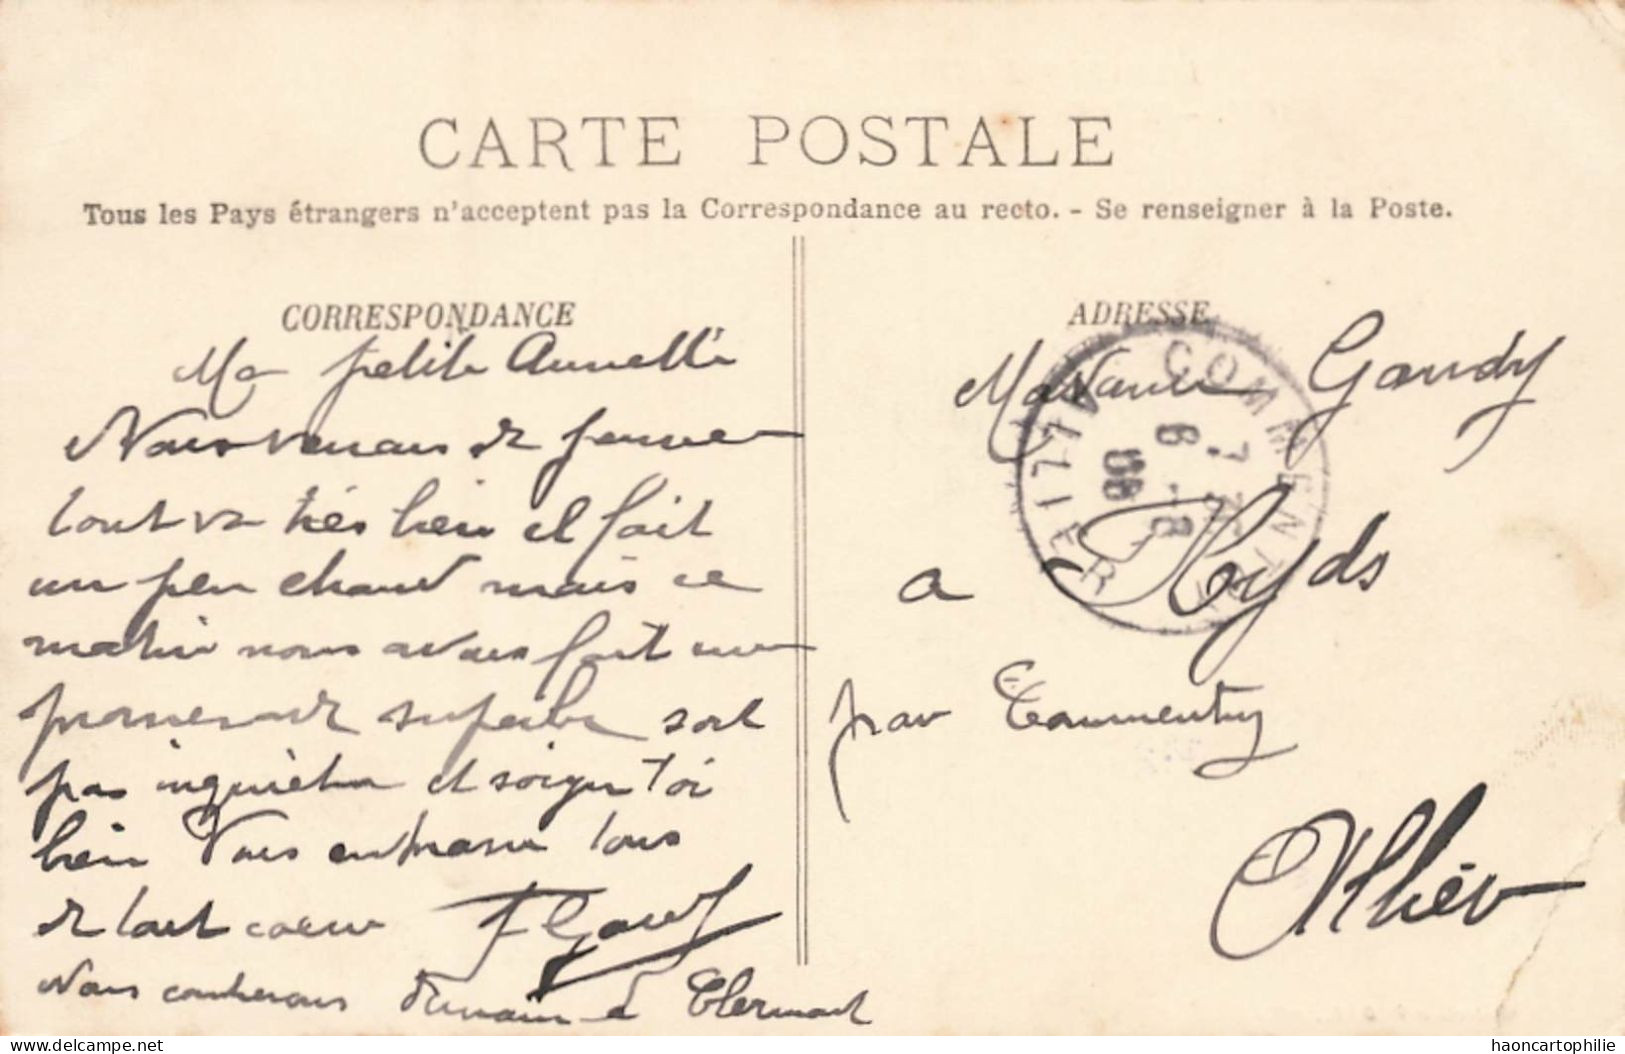 CARTE POSTALE
Tous les Pays étrangers n'acceptent pas la Correspondance au recto. - Se renseigner à la Poste.
CORRESPONDANCE
Ma petite Annette
Nous venons de
tout va très bien il fait
un peu chaud mais ce
matin nous avons fait une
promenade superbe soit
pas inquiète et soigne toi
bien Vous embrasse tous
de tout coeur F Gandy
Nous coucherons demain à Clermont
ADRESSE
Madame Gandy
a Hyds
par Commentry
Allier
COMMENTRY
ALLIER
7
6 -8
08
delcampe.net
haoncartophilie